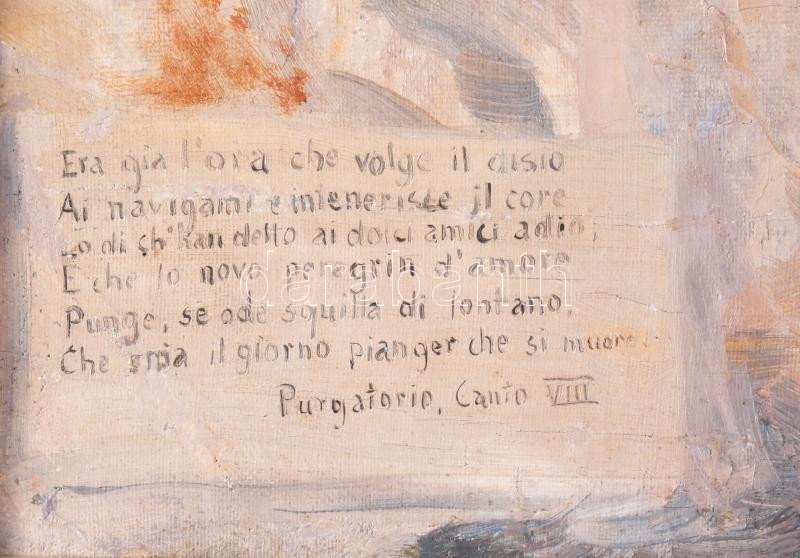 Era gia l'ora che volge il disio
Ai naviganti e intenerisce il core
Lo di ch'han detto ai dolci amici adio,
E che lo novo peregrin d'amore
Punge, se ode squilla di lontano,
Che paia il giorno pianger che si muore
Purgatorio, Canto VIII
darabanth